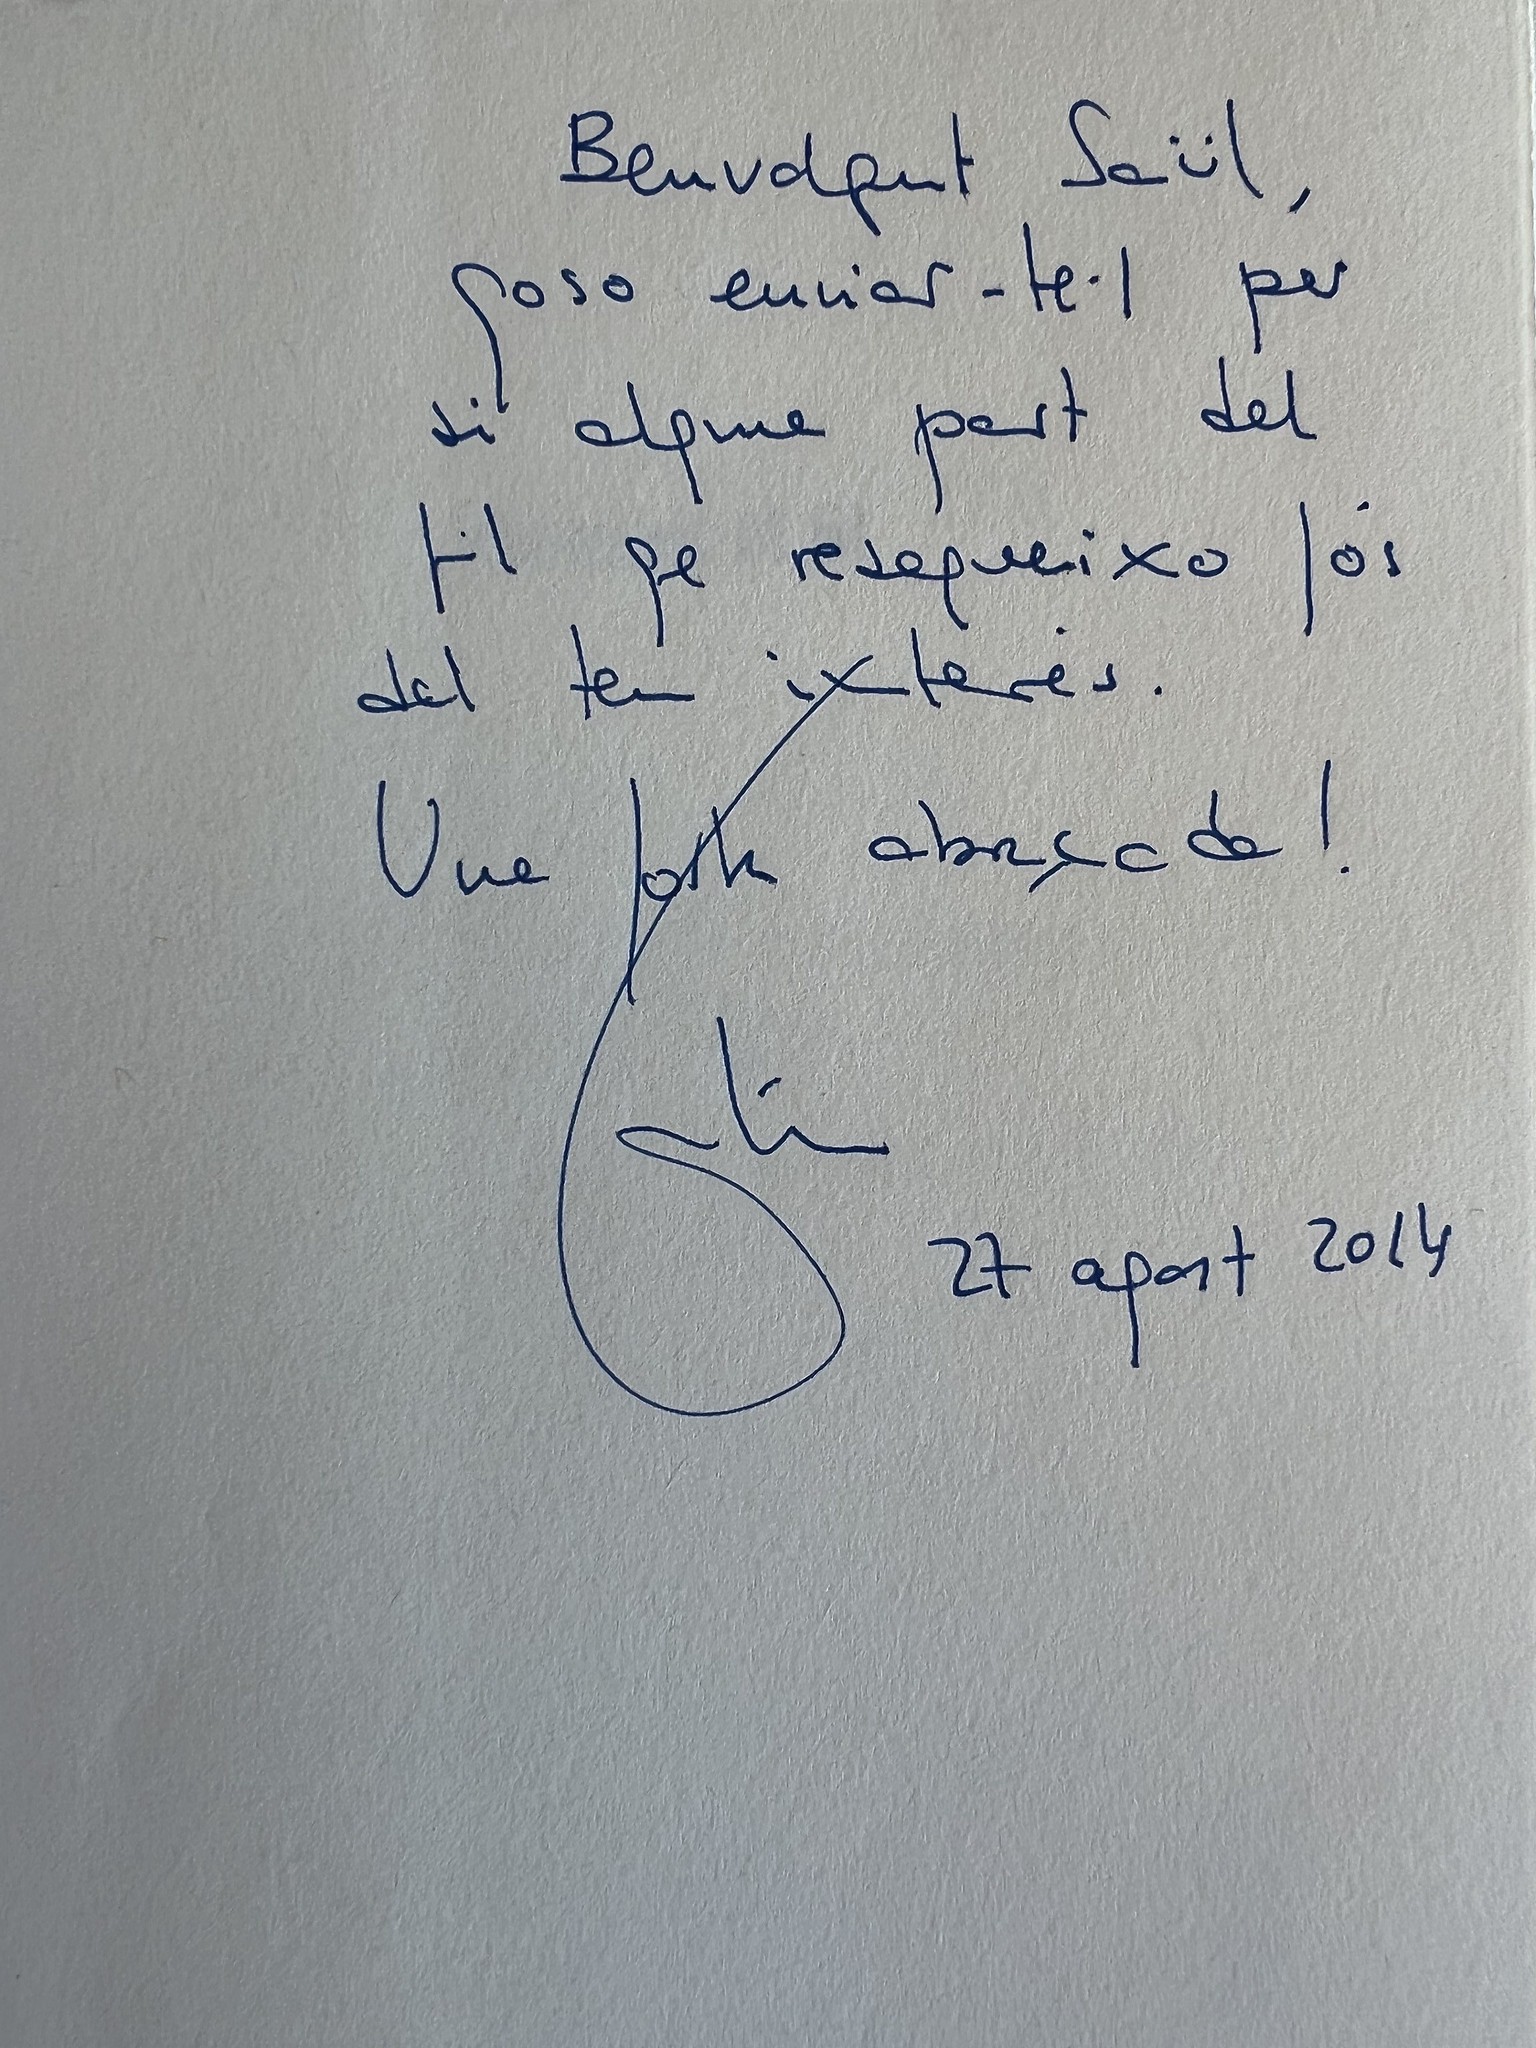 Benvolgut Saül,
goso enviar-te'l per
si alguna part del
fil qe ressegueixo fós
del teu interès.
Una forta abraçada!
27 agost 2014